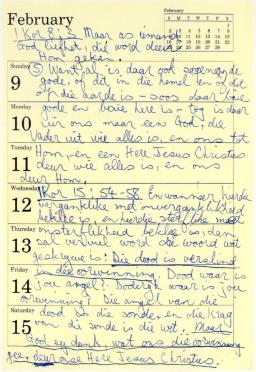 February
February
S M T W T F S
1 Kor 8:3 Maar as iemand
God liefhet, dié word deur
Hom geken.
Sunday 9
5) Want al is daar ook sogenaamde
gode, of dit in die hemel en of dit
op die aarde is – soos daar baie
Monday 10
gode en baie here is – tog is daar
vir ons maar een God die
Vader uit wie alles is, en ons tot
Tuesday 11
Hom, en een Here Jesus Christus
deur wie alles is, en ons
deur Hom.
Wednesday 12
1 Kor. 15:54-58. En wanneer hierdie
verganklike met onverganklikheid
beklee is, en hierdie sterflike met
Thursday 13
onsterflikheid beklee is, dan
sal vervul word die woord wat
geskrywe is: Die dood is verslind
Friday 14
in die oorwinning. Dood waar is
jou angel? Doderyk waar is jou
oorwinning? Die angel van die
Saturday 15
dood is die sonde, en die krag
van die sonde is die wet. Maar
God sy dank, wat ons die oorwinning
gee deur onse Here Jesus Christus.